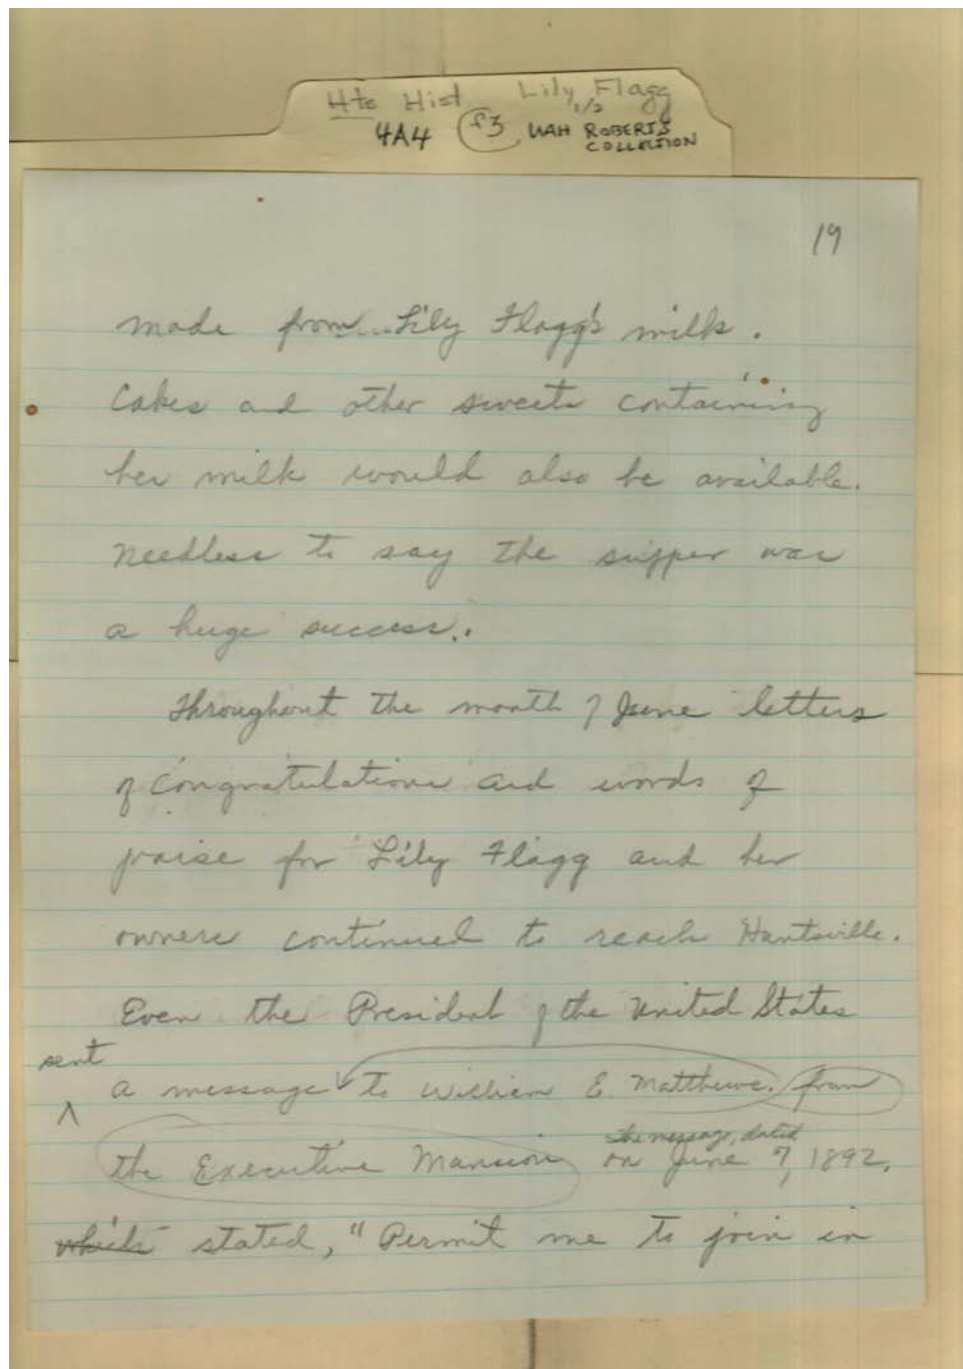 Hts Hist Lily Flagg
1/2
4A4 f3 UAH ROBERTS
COLLECTION
19
made from Lily Flagg's milk.
Cakes and other sweets containing
her milk would also be available.
Needless to say the supper was
a huge success.
Throughout the month of June letters
of congratulations and words of
praise for Lily Flagg and her
owners continued to reach Huntsville.
Even the President of the United States
sent
a message to William E. Matthews. from
the message, dated
the Executive Mansion on June 7, 1892,
which stated, "Permit me to join in